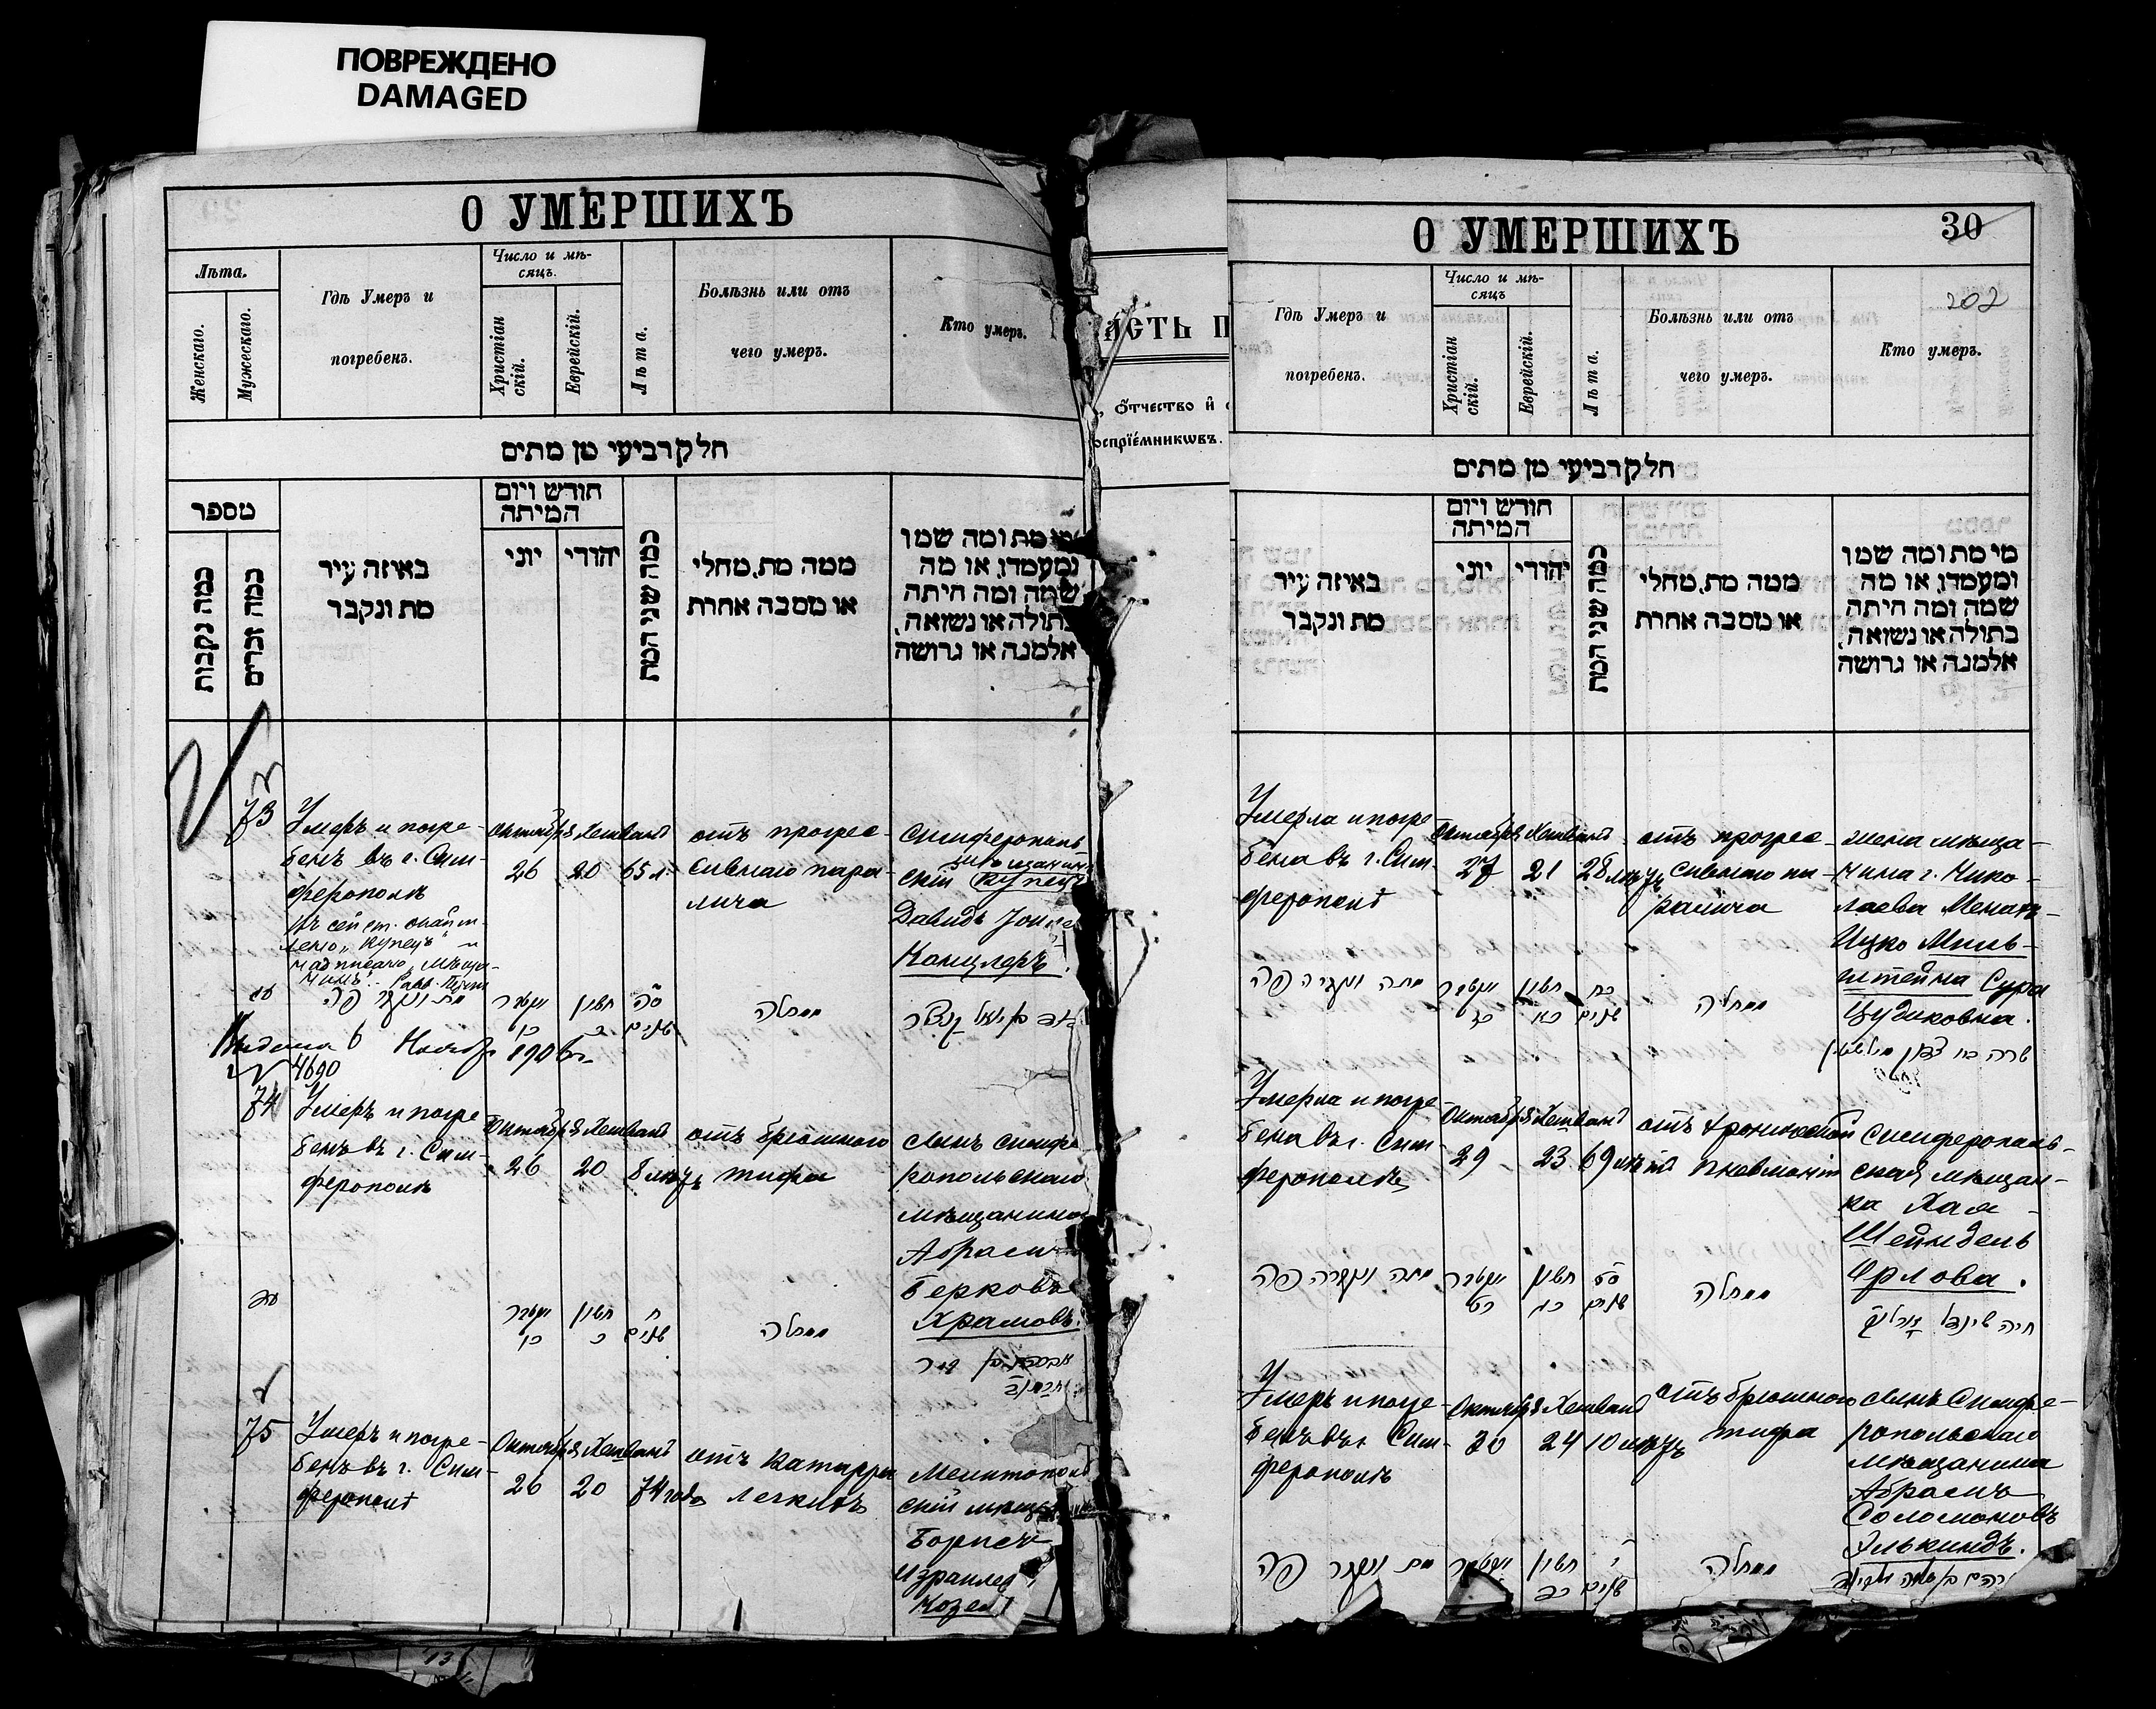 ПОВРЕЖДЕНО
DAMAGED
О УМЕРШИХЪ
Лѣта.
Женскаго.
Мужескаго.
Гдѣ Умеръ и
погребенъ.
Число и мѣ-
сяцъ.
Христіан
скій.
Еврейскій.
Лѣта.
Болѣзнь или отъ
чего умеръ.
Кто умеръ.
חלק רביעי מן מתים
מספר
כמה נקבות
כמה זכרים
באיזה עיר
מת ונקבר
חודש ויום
המיתה
יוני
יהודי
כמה שני המת
ממה מת, מחלי
או מסבה אחרת
מי מת ומה שמו
ומעמדו, או מה
שמה ומה היתה
בתולה או נשואה,
אלמנה או גרושה
73
Умеръ и погре-
бенъ въ г. Сим-
ферополѣ
Октября
26
Хешванъ
20
65 л.
отъ прогрес-
сивнаго пара-
лича
Симферополь
мѣщанинъ
скій купецъ
Давидъ
Канцлеръ.
מת ונקבר פה
חשון
סה
שנים
מחלה
Выдана 6 Ноябр 190
4690
74
Умеръ и погре
бенъ въ г. Сим-
ферополѣ
Октября
26
Хешванъ
20
8 лѣтъ
отъ брюшного
тифа
сынъ симфе
ропольскаго
мѣщанина
Абрамъ
Берковъ
Храмовъ.
חשון
כ
ח
שנים
מחלה
75
Умеръ и погре-
бенъ въ г. Сим-
ферополѣ
Октября
26
Хешванъ
20
74 года
отъ катарра
легкихъ
Мелитополь
скій мѣщ
Израилев
Козел
АСТЬ П
, Ѻтчество и
оспріемниковъ.
О УМЕРШИХЪ
30
202
Гдѣ Умеръ и
погребенъ.
Число и мѣ-
сяцъ
Христіан
скій.
Еврейскій.
Лѣта.
Болѣзнь или отъ
чего умеръ.
Кто умеръ.
חלק רביעי מן מתים
באיזה עיר
מת ונקבר
חודש ויום
המיתה
יוני
יהודי
כמה שני המת
ממה מת, מחלי
או מסבה אחרת
מי מת ומה שמו
ומעמדו, או מה
שמה ומה היתה
בתולה או נשואה,
אלמנה או גרושה
Умерла и погре
бена въ г. Сим-
ферополѣ
Октября
27
Хешванъ
21
28 лѣтъ
отъ прогрес-
сивнаго па-
ралича
жена мѣща-
нина г. Нико-
лаева Менахъ-
Ицко Миль-
штейна Сура
Цудиковна.
מתה ונקברה פה
חשון
כא
כח
שנים
מחלה
Умерла и погре
бена въ г. Сим-
ферополѣ
Октября
29
Хешванъ
23
69 лѣтъ
отъ хронической
пневмоніи
Симферополь-
ская мѣщан-
ка Хая-
Шейндель
Орлова.
מתה ונקברה פה
כט
חשון
כג
סט
שנים
מחלה
חיה שינדל
Умеръ и погре-
бенъ въ г. Сим-
ферополѣ
Октября
30
Хешванъ
24
10 лѣтъ
отъ брюшного
тифа
сынъ Симфе-
ропольскаго
мѣщанина
Абрамъ
Соломоновъ
Элькиндъ.
מת ונקבר פה
חשון
כד
י
שנים
מחלה